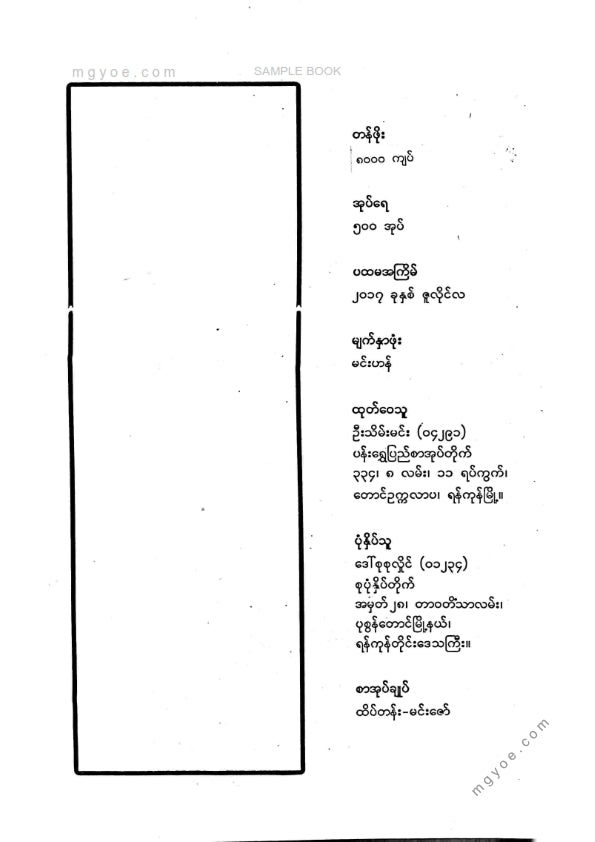 mgyoe.com
SAMPLE BOOK
တန်ဖိုး
၈၀၀၀ ကျပ်
အုပ်ရေ
၅၀၀ အုပ်
ပထမအကြိမ်
၂၀၁၇ ခုနှစ် ဇူလိုင်လ
မျက်နှာဖုံး
မင်းဟန်
ထုတ်ဝေသူ
ဦးသိမ်းမင်း (၀၄၂၉၁)
ပန်းရွှေပြည်စာအုပ်တိုက်
၃၃၄၊ ၈ လမ်း၊ ၁၁ ရပ်ကွက်၊
တောင်ဥက္ကလာပ၊ ရန်ကုန်မြို့။
ပုံနှိပ်သူ
ဒေါ်စုစုလှိုင် (၀၁၂၃၄)
စုပုံနှိပ်တိုက်
အမှတ် ၂၈၊ တာဝတိံသာလမ်း၊
ပုဇွန်တောင်မြို့နယ်၊
ရန်ကုန်တိုင်းဒေသကြီး။
စာအုပ်ချုပ်
ထိပ်တန်း-မင်းဇော်
mgyoe.com